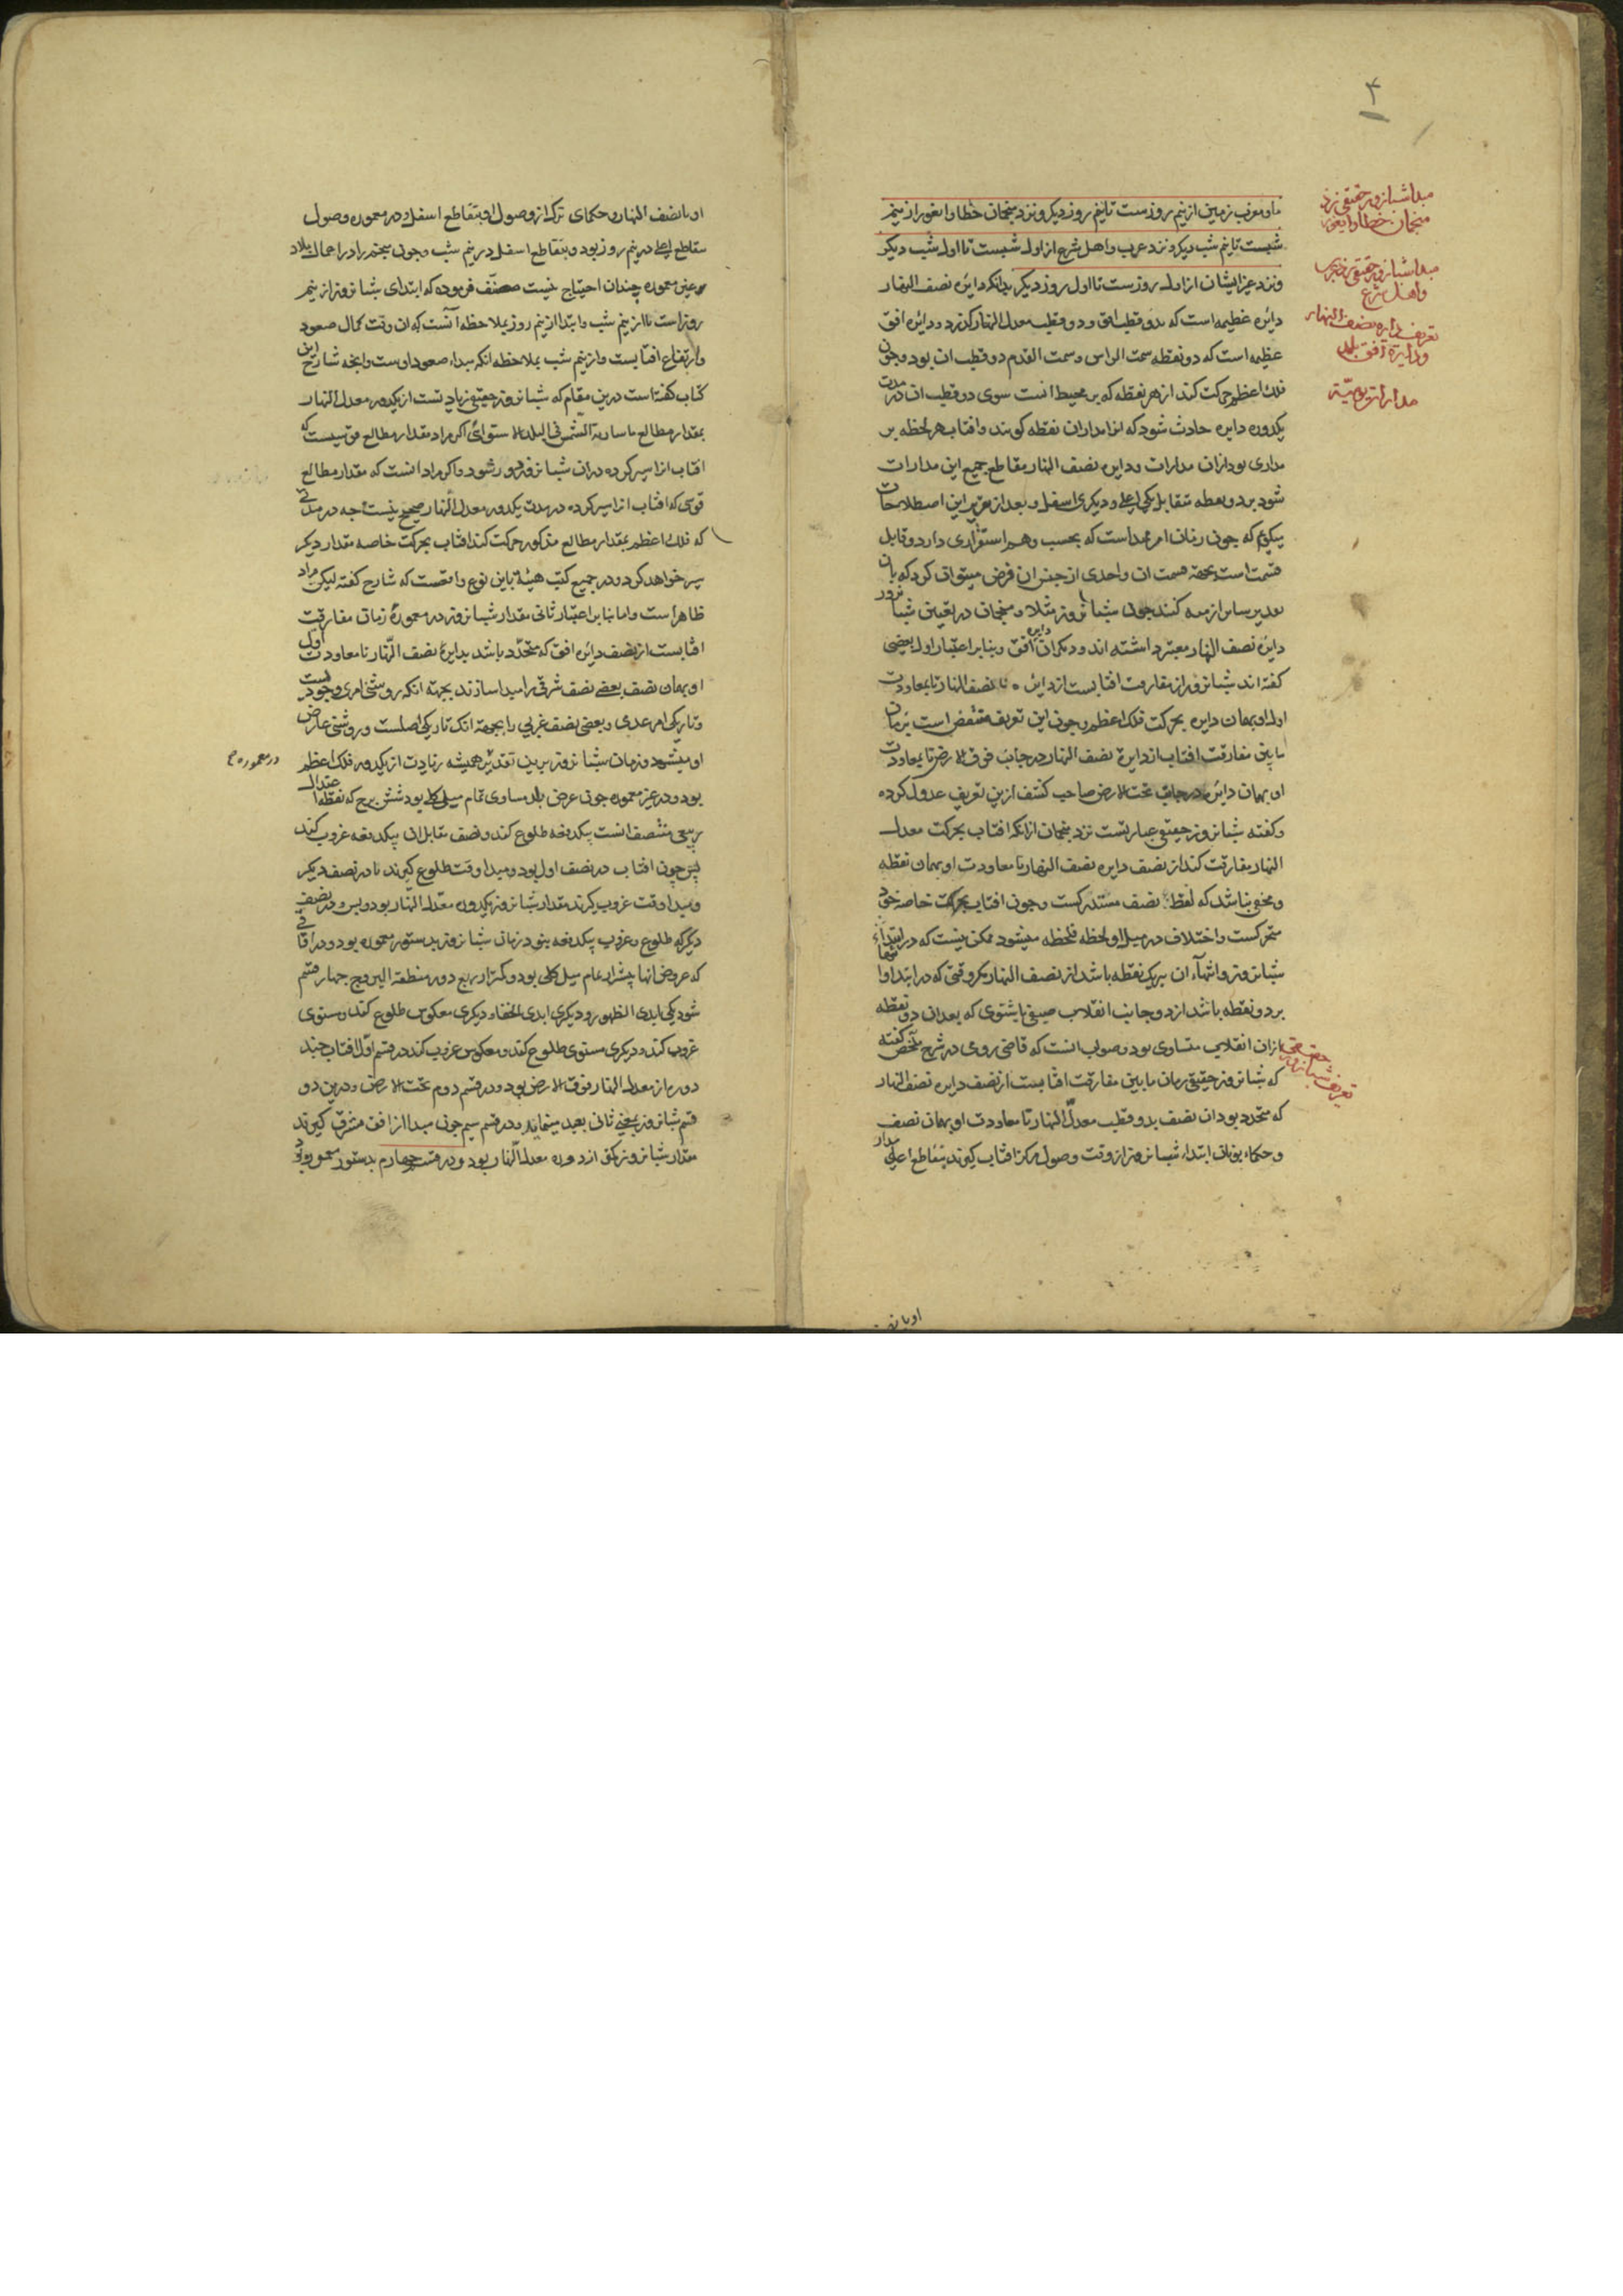 ۴
مبدا شبانروز حقیقی نزد
منجمان خطا و ایغور
مبدا شبانروز حقیقی نزد عرب
واهل شرع
تعریف دایره نصف النهار
ودایرة افق بلد
مدارات یومیّة
ما ومغرب زمین از نیم روزست تا نیم روز دیکر ونزد منجمان خطا وایغور از نیم
شبست تا نیم شب دیکر ونزد عرب واهل شرع از اول شبست تا اول شب دیکر
ونزد غیر ایشان از اول روزست تا اول روز دیکر بدانکه دایره نصف النهار
دایره عظیمه است که بدو قطب افق و دو قطب معدل النهار کذرد ودایره افق
عظیمه است که دو نقطه سمت الراس وسمت القدم دو قطب ان بود وچون
فلک اعظم حرکت کند از هر نقطه که بر محیط انست سوی دو قطب ان در مدت
یکدوره دایره حادث شود که انرا مدار ان نقطه کویند وافتاب هر لحظه بر
مداری بود ازان مدارات ودایره نصف النهار مقاطع جمیع این مدارات
شود بر دو نقطه متقابل یکی اعلی ودیکری اسفل وبعد از تقریر این اصطلاحات
میکویم که چون زمان امر ممتد است که بحسب وهم استقراری دارد وقابل
قسمت است بجهة قسمت ان واحدی از جنس ان فرض میتوان کرد که بان
تقدیر سایر ازمنه کنند چون شبانروز مثلا ومنجمان در تعیین شبانروز
دایره نصف النهار معتبر داشته اند ودیکران دایره افق وبنابر اعتبار اول بعضی
کفته اند شبانروز از مفارقت افتابست از دایره نصف النهار تا بمعاودت
او بهمان دایره بحرکت فلک اعظم وچون این تعریف منتقض است بزمان
مابین مفارقت افتاب از دایره نصف النهار در جانب فوق الارض تا بمعاودت
او بهمان دایره در جانب تحت الارض صاحب کشف ازین تعریف عدول کرده
وکفته شبانروز حقیقی عبارتست نزد منجمان ازانکه افتاب بحرکت معدل
النهار مفارقت کند از نصف دایره نصف النهار تا معاودت او بهمان نقطه
ومخفی نباشد که لفظ نصف مستدرکست وچون افتاب بحرکت خاصه خود
متحرکست واختلاف در میل او لحظه فلحظه میشود ممکن نیست که در ابتداء
شبانروز وانتهاء ان بر یک نقطه باشد از نصف النهار مکر وقتی که در ابتدا وانتها
بر دو نقطه باشد از دو جانب انقلاب صیفی یا شتوی که بعد ان دو نقطه
ازان انقلاب متساوی بود وصواب انست که قاضی رومی در شرح ملخص کفته
تعریف شبانروز حقیقی
که شبانروز حقیقی زمان مابین مفارقت افتابست از نصف دایره نصف النهار
که متحدد بود ان نصف بدو قطب معدل النهار تا معاودت او بهمان نصف
وحکماء یونان ابتداء شبانروز از وقت وصول مرکز افتاب کیرند بتقاطع اعلی مدار
او با نصف النهار وحکمای ترک از وصول او بتقاطع اسفل ودر معموره وصول
بتقاطع اعلی در نیم روز بود وبتقاطع اسفل در نیم شب وچون منجم را در اعمال بلاد
غیر معموره چندان احتیاج نیست مصنّف فرموده که ابتدای شبانروز از نیم
روز است تا از نیم شب وابتدا از نیم روز بملاحظه آنست که ان وقت کمال صعود
وارتفاع افتابست واز نیم شب بملاحظه انکه مبداء صعود اوست وانچه شارح این
کتاب کفتست درین مقام که شبانروز حقیقی زیادتست از یکدور معدل النهار
بمقدار مطالع ما سارته الشمس فی البلد الاستوائی اکر مراد مقدار مطالع قوسیست که
افتاب انرا سیر کرده دران شبانروز دور شود واکر مراد انست که مقدار مطالع
قوسی که افتاب انرا سیر کرده در مدت یکدور معدل النهار صحیح نیست چه در مدتی
که فلک اعظم بمقدار مطالع مذکور حرکت کند افتاب بحرکت خاصه مقدار دیکر
سیر خواهد کرد ودر جمیع کتب هیئة باین نوع واقعست که شارح کفته لیکن مراد
ظاهر است واما بنابر اعتبار ثانی مقدار شبانروز در معموره زمان مفارقت
افتابست از نصف دایره افق که متحدّد باشد بدایره نصف النّهار تا معاودت اول
او بهمان نصف بعضی نصف شرقی را مبدا سازند بجهة انکه روشنی امری وجودیست
وتاریکی امر عدمی وبعضی نصف غربی را بجهة انک تاریکی اصلست وروشنی عارض
او میشود وزمان شبانروز برین تقدیر همیشه زیادت از یکدور فلک اعظم
در معموره
بود ودر غیر معموره چون عرض بلد مساوی تمام میل کلی بود شش برج که نقطه اعتدال
ربیعی منتصف انست بیکدفعه طلوع کند ونصف مقابل ان بیکدفعه غروب کند
پس چون افتاب در نصف اول بود ومبدا وقت طلوع کیرند تا در نصف دیکر
ومبدا وقت غروب کیرند مقدار شبانروز یکدور معدل النّهار بود وبس ودر نصف
دیکر که طلوع وغروب بیکدفعه بنود زمان شبانروز بدستور معموره بود ودر افاقی
که عروض انها بیشتر از تمام میل کلی بود وکمتر از ربع دور منطقة البروج چهار قسم
شود یکی ابدی الظهور ودیکری ابدی الخفاء ودیکری معکوس طلوع کند ومستوی
غروب کند ودیکری مستوی طلوع کند ومعکوس غروب کند در قسم اول افتاب چند
دور از معدل النهار فوق الارض بود ودر قسم دوم تحت الارض ودرین دو
قسم شبانروز بمعنی ثانی بعید مینماید ودر قسم سیم چون مبدا از افق مشرق کیرند
مقدار شبانروز کمتر از دوره معدل النّهار بود ودر قسم چهارم بدستور معموره بود